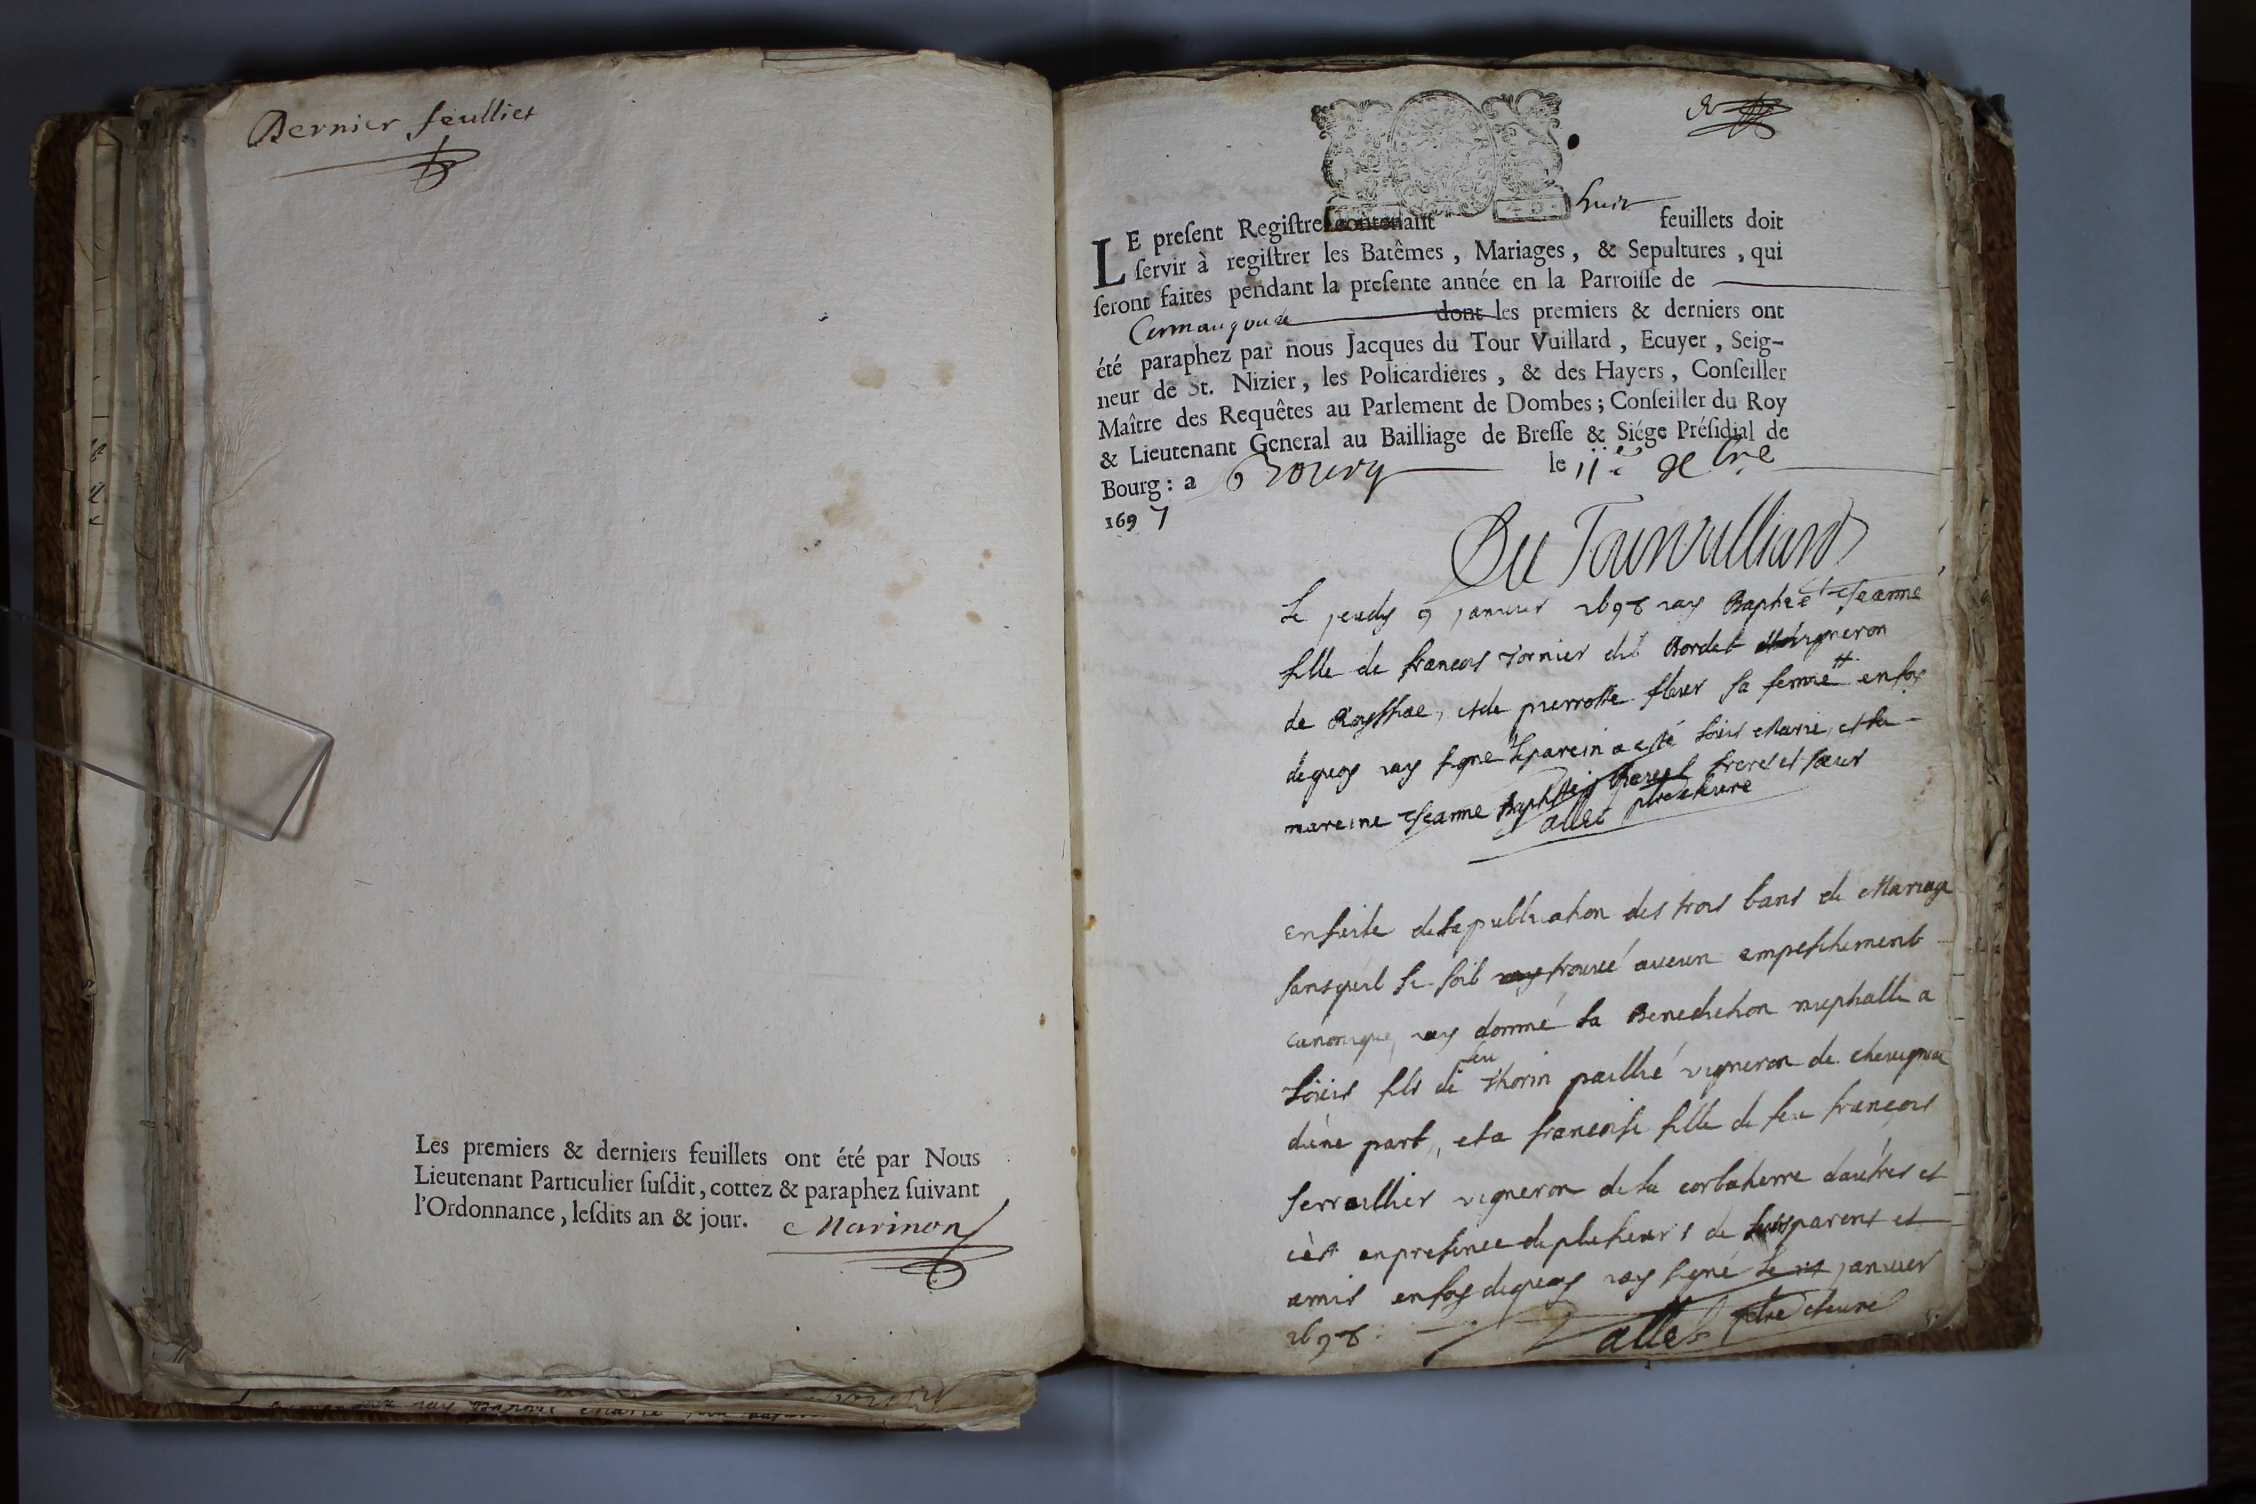 Dernier feulliet
Les premiers & derniers feuillets ont été par Nous
Lieutenant Particulier ſuſdit, cottez & paraphez ſuivant
l'Ordonnance, leſdits an & jour.
Marinon
LE preſent Regiſtre contenant huit feuillets doit
ſervir à regiſtrer les Batêmes, Mariages, & Sepultures, qui
ſeront faites pendant la preſente année en la Parroiſſe de
dont les premiers & derniers ont
été paraphez par nous Jacques du Tour Vuillard, Ecuyer, Seig-
neur de St. Nizier, les Policardieres, & des Hayers, Conſeiller
Maître des Requêtes au Parlement de Dombes; Conſeiller du Roy
& Lieutenant General au Bailliage de Breſſe & Siége Préſidial de
Bourg: a Bourg le 11e
1697
Du Tourvulliard
Le jeudy 9 janvier 1698 iay Baptizé Jeanne
fille de francois dit Bordet vigneron
de et de pierrotte sa femme en foy
dequoy iay signé le parein a esté loüis Marie, et la
mareine Jeanne freres et sœur
allet ptre et curé
ensuite de la publication des trois bans de Mariage
sans quil se soit trouvé aucun empeschement
canonique, iay donné la Benediction nuptialle a
loüis fils de feu Thorin paillié vigneron de
düne part, et a francoise fille de feu françois
serraillier vigneron de la corbaterre daûtres et
cèst en presence de plusieurs de parens et
amis en foy dequoy iay signé le janvier
1698 allet ptre et curé